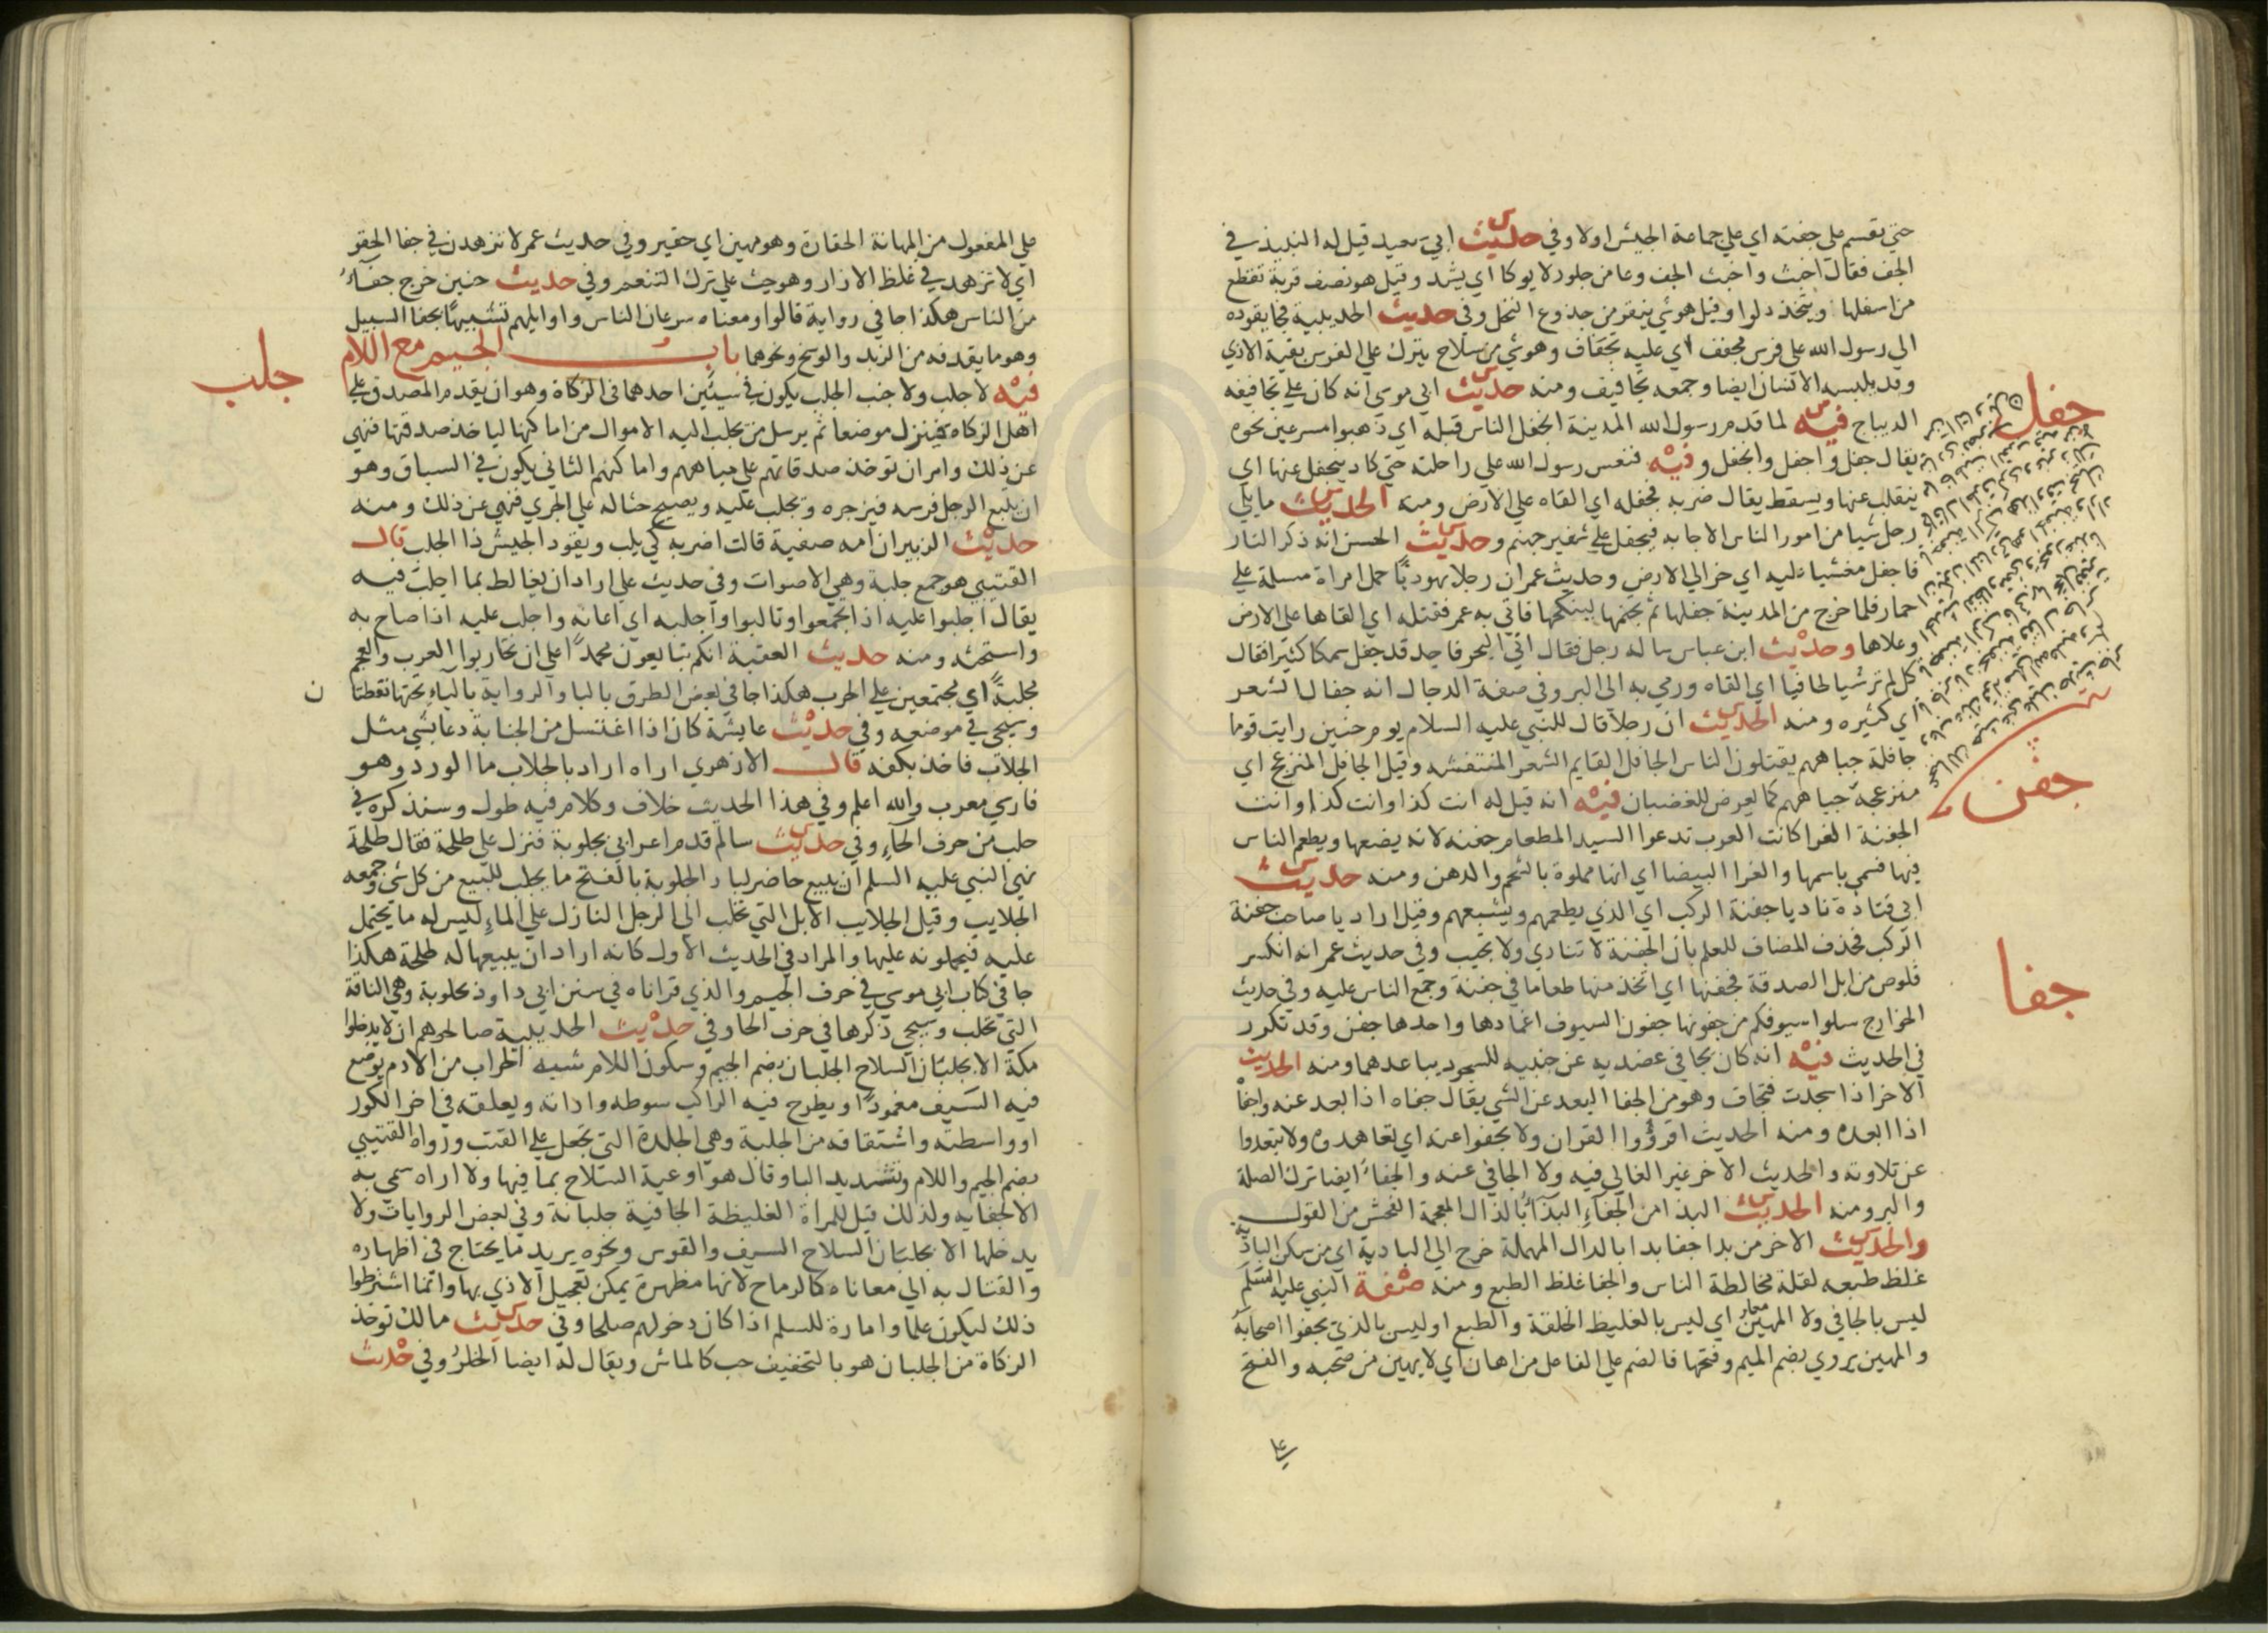 حتي تقسم على جفته اي على جماعة الجيش اولا وفي حديث ابي سعيد قيل له النبيذ في
الجف فقال اخبث واخبث الجف وعا من جلود لا يوكا اي يشد وقيل هو نصف قربة تقطع
من اسفلها ويتخذ دلوا وقيل هو شي ينقر من جذوع النخل وفي حديث الحديبية فجا يقوده
الي رسول الله على فرس مجفف اي عليه تجفاف وهو شي من سلاح يترك على الفرس يقيه الاذي
وقد يلبسه الانسان ايضا وجمعه تجافيف ومنه حديث ابي موسي انه كان على تجافيفه
جفل
الديباج فيه لما قدم رسول الله المدينة انجفل الناس قبله اي ذهبوا مسرعين نحوه
يقال جفل واجفل وانجفل وفيه فنعس رسول الله على راحلته حتي كاد ينجفل عنها اي
ينقلب عنها ويسقط يقال ضربه فجفله اي القاه على الارض ومنه الحديث ما يلي
رجل شيا من امور الناس الا جا به فيجفل على شفير جهنم وحديث الحسن انه ذكر النار
فاجفل مغشيا عليه اي خر الي الارض وحديث عمر ان رجلا يهوديا حمل امراة مسلمة على
حمار فلما خرج من المدينة جفلها ثم تجثمها لينكحها فاتي به عمر فقتله اي القاها على الارض
وعلاها وحديث ابن عباس ساله رجل فقال اتي البحر فاجد قد جفل سمكا كثيرا فقال
كل ما لم تر شيا طافيا اي القاه ورمي به الي البر وفي صفة الدجال انه جفال الشعر
اي كثيره ومنه الحديث ان رجلا قال للنبي عليه السلام يوم حنين رايت قوما
جافلة جباههم يقتلون الناس الجافل القايم الشعر المنتفشه وقيل الجافل المنزعج اي
جفن
منزعجة جباههم كما يعرض للغضبان فيه انه قيل له انت كذا وانت كذا وانت
الجفنة الغرا كانت العرب تدعوا السيد المطعام جفنه لانه يضعها ويطعم الناس
فيها فسمي باسمها والغرا البيضا اي انها مملوة بالشحم والدهن ومنه حديث
ابي قتادة ناد يا جفنة الركب اي الذي يطعمهم ويشبعهم وقيل اراد يا صاحب جفنة
الركب فحذف المضاف للعلم بان الجفنة لا تنادي ولا تجيب وفي حديث عمر انه انكسر
قلوص من ابل الصدقة فجفنها اي اتخذ منها طعاما في جفنة وجمع الناس عليه وفي حديث
جفا
الخوارج سلوا سيوفكم من جفونها جفون السيوف اغمادها واحدها جفن وقد تكرر
في الحديث فيه انه كان يجافي عضديه عن جنبيه للسجود يباعدهما ومنه الحديث
الاخر اذا سجدت فتجاف وهو من الجفا البعد عن الشي يقال جفاه اذا بعد عنه واجفا
اذا ابعده ومنه الحديث اقرؤوا القران ولا تجفوا عنه اي تعاهدوه ولا تبتعدوا
عن تلاوته والحديث الاخر غير الغالي فيه ولا الجافي عنه والجفا ايضا ترك الصلة
والبر ومنه الحديث البذا من الجفاء البذاء بالذال المعجمة الفحش من القول
والحديث الاخر من بدا جفا بدا بالدال المهملة خرج الي البادية اي من سكن البادية
غلظ طبعه لقلة مخالطة الناس والجفا غلظ الطبع ومنه صفة النبي عليه السلم
ليس بالجافي ولا المهين اي ليس بالغليظ الخلقة والطبع او ليس بالذي يجفوا اصحابه
والمهين يروي بضم الميم وفتحها فالضم على الفاعل من اهان اي لا يهين من صحبه والفتح
على المفعول من المهانة الحقارة وهو مهين اي حقير وفي حديث عمر لا تزهدن في جفا الحقو
اي لا تزهد في غلظ الازار وهو حث على ترك التنعم وفي حديث حنين خرج جفاء
من الناس هكذا جا في رواية قالوا ومعناه سرعان الناس واوايلهم تشبيها بجفا السيل
وهو ما يقذفه من الزبد والوسخ ونحوهما باب الجيم مع اللام
جلب
فيه لا جلب ولا جنب الجلب يكون في شيئين احدهما في الزكاة وهو ان يقدم المصدق على
اهل الزكاه فينزل موضعا ثم يرسل من يجلب اليه الاموال من اماكنها لياخذ صدقتها فنهي
عن ذلك وامر ان توخذ صدقاتهم على مياههم واماكنهم الثاني يكون في السباق وهو
ان يتبع الرجل فرسه فيزجره ويجلب عليه ويصيح حثا له على الجري فنهي عن ذلك ومنه
حديث الزبير ان امه صفية قالت اضربه كي يلب ويقود الجيش ذا الجلب قال
القتيبي هو جمع جلبة وهي الاصوات وفي حديث على اراد ان يغالط بما اجلب فيه
يقال اجلبوا عليه اذا تجمعوا وتالبوا واجلبه اي اعانه واجلب عليه اذا صاح به
واستحثه ومنه حديث العقبة انكم تبايعون محمدا على ان تحاربوا العرب والعجم
مجلبة اي مجتمعين على الحرب هكذا جا في بعض الطرق بالبا والرواية بالياء تحتها نقطتان
وسيجي في موضعه وفي حديث عايشة كان اذا اغتسل من الجنابة دعا بشي مثل
الجلاب فاخذ بكفه قال الازهري اراه اراد بالجلاب ما الورد وهو
فارسي معرب والله اعلم وفي هذا الحديث خلاف وكلام فيه طول وسنذكره في
حلب من حرف الحاء وفي حديث سالم قدم اعرابي بجلوبة فنزل على طلحة فقال طلحة
نهي النبي عليه السلم ان يبيع حاضر لباد الجلوبة بالفتح ما يجلب للبيع من كل شي وجمعه
الجلايب وقيل الجلايب الابل التي تجلب الي الرجل النازل على الماء ليس له ما يحتمل
عليه فيحملونه عليها والمراد في الحديث الاول كانه اراد ان يبيعها له طلحة هكذا
جا في كتاب ابي موسي في حرف الجيم والذي قراناه في سنن ابي داود بحلوبة وهي الناقة
التي تحلب وسيجي ذكرها في حرف الحا وفي حديث الحديبية صالحوهم ان لا يدخلوا
مكة الا بجلبان السلاح الجلبان بضم الجيم وسكون اللام شبه الجراب من الادم يوضع
فيه السيف مغمودا ويطرح فيه الراكب سوطه واداته ويعلقه في اخر الكور
او واسطته واشتقاقه من الجلبة وهي الجلدة التي تجعل على القتب ورواه القتيبي
بضم الجيم واللام وتشديد البا وقال هو اوعية السلاح بما فيها ولا اراه سمي به
الا لجفايه ولذلك قيل للمراة الغليظة الجافية جلبانة وفي بعض الروايات ولا
يدخلها الا بجلبان السلاح السيف والقوس ونحوه يريد ما يحتاج في اظهاره
والقتال به الي معاناه كالرماح لانها مظهرة يمكن تعجيل الاذي بها وانما اشترطوا
ذلك ليكون علما وامارة للسلم اذا كان دخولهم صلحا وفي حديث مالك توخذ
الزكاة من الجلبان هو بالتخفيف حب كالماش ويقال له ايضا الخلر وفي حديث